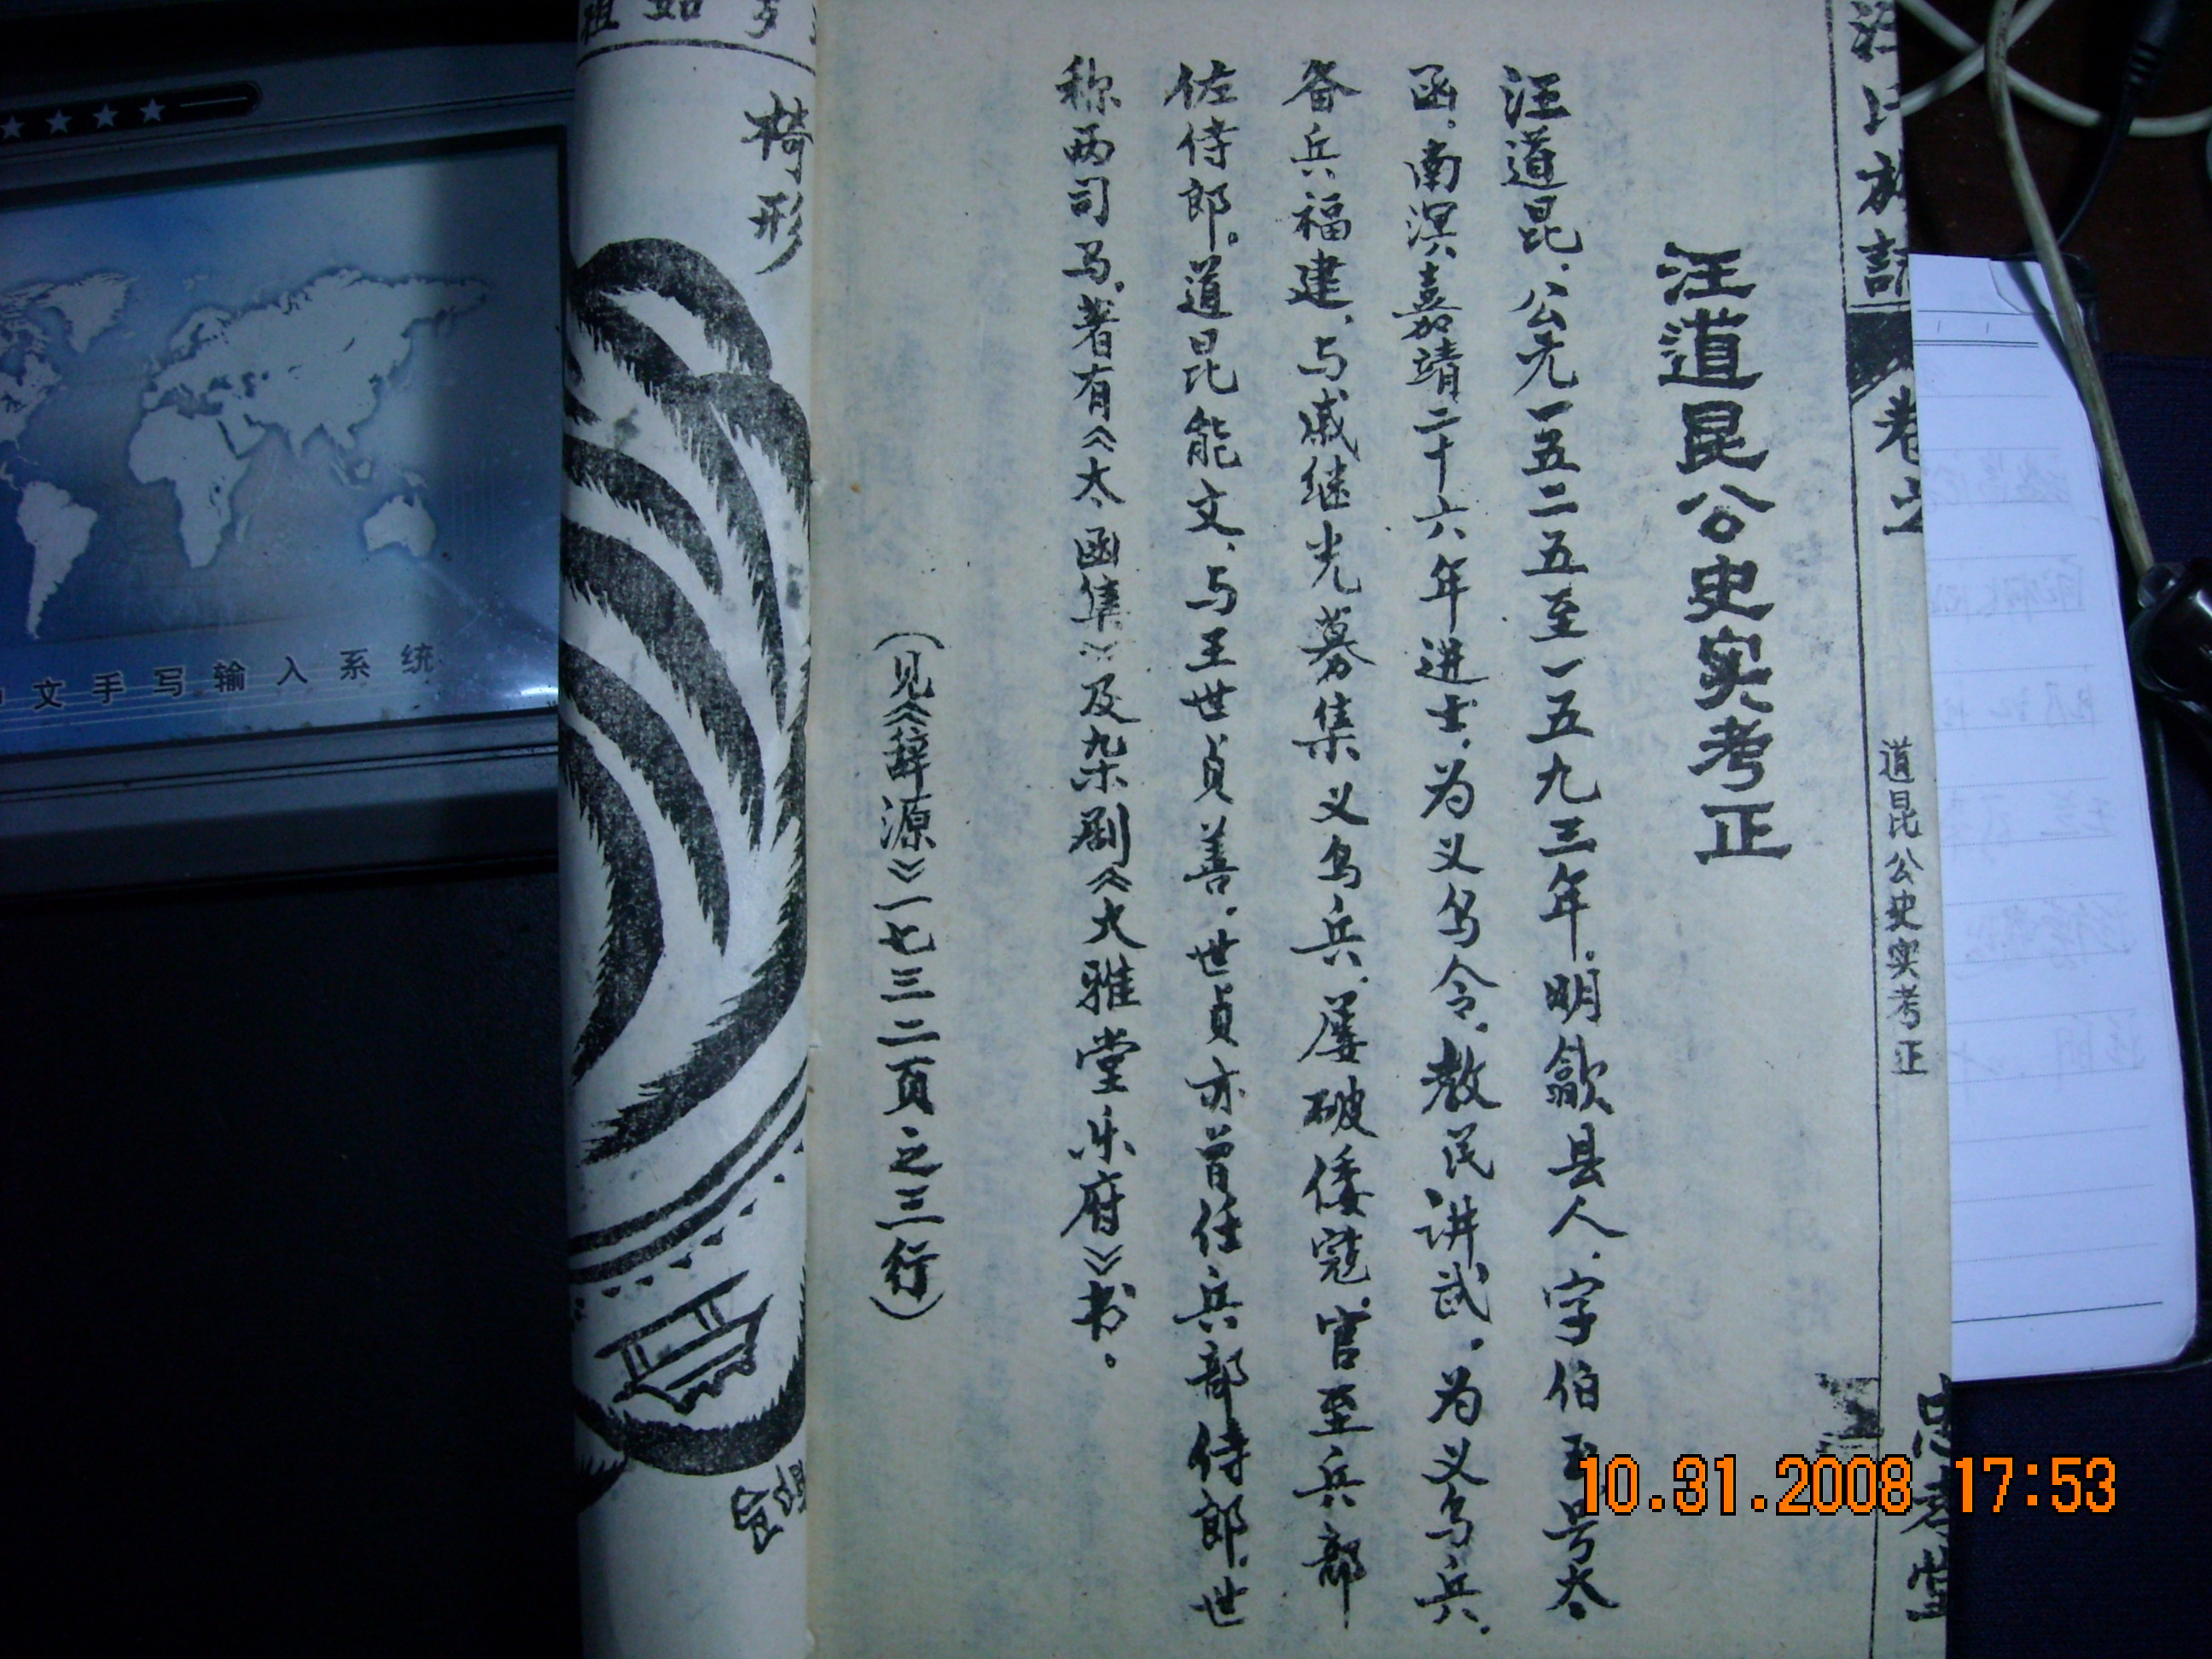 汪道昆公史实考正
汪道昆、公元一五二五至一五九三年。明歙县人、字伯玉号太
函、南溟嘉靖二十六年进士、为义乌令、教民讲武。为义乌兵、
备兵福建、与戚继光募集义乌兵、屡破倭寇、官至兵部
佐侍郎。道昆能文、与王世贞善、世贞亦曾任兵部侍郎、世
称两司马。著有《太函集》及杂剧《大雅堂乐府》书。
（见《辞源》一七三二页之三行）
卷之
道昆公史实考正
忠孝堂
椅形
文手写输入系统
10.31.2008 17:53